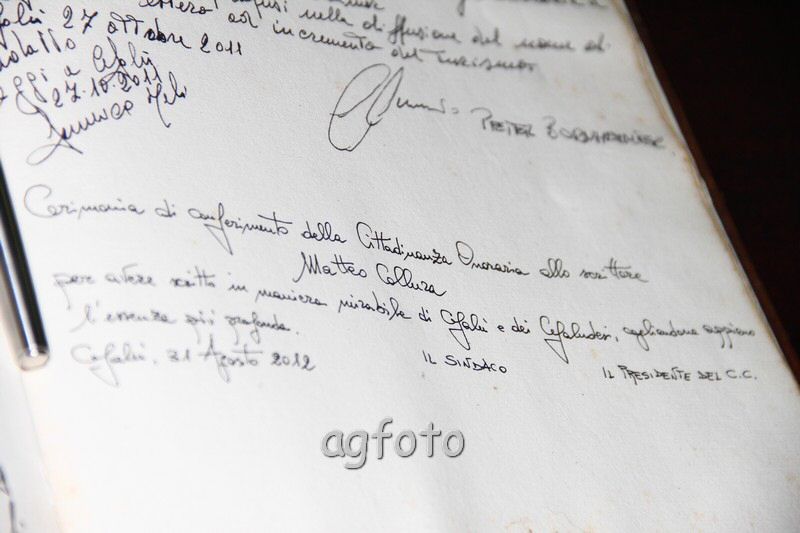 nella diffusione del nome di
ad incremento del turismo.
27 ottobre 2011
Oggi a Cefalù
27.10.2011
PIETER
Cerimonia di conferimento della Cittadinanza Onoraria allo scrittore
Matteo Collura
per avere scritto in maniera mirabile di Cefalù e dei Cefaludesi, cogliendone appieno
l'essenza più profonda.
Cefalù, 31 Agosto 2012
IL SINDACO
IL PRESIDENTE DEL C.C.
agfoto